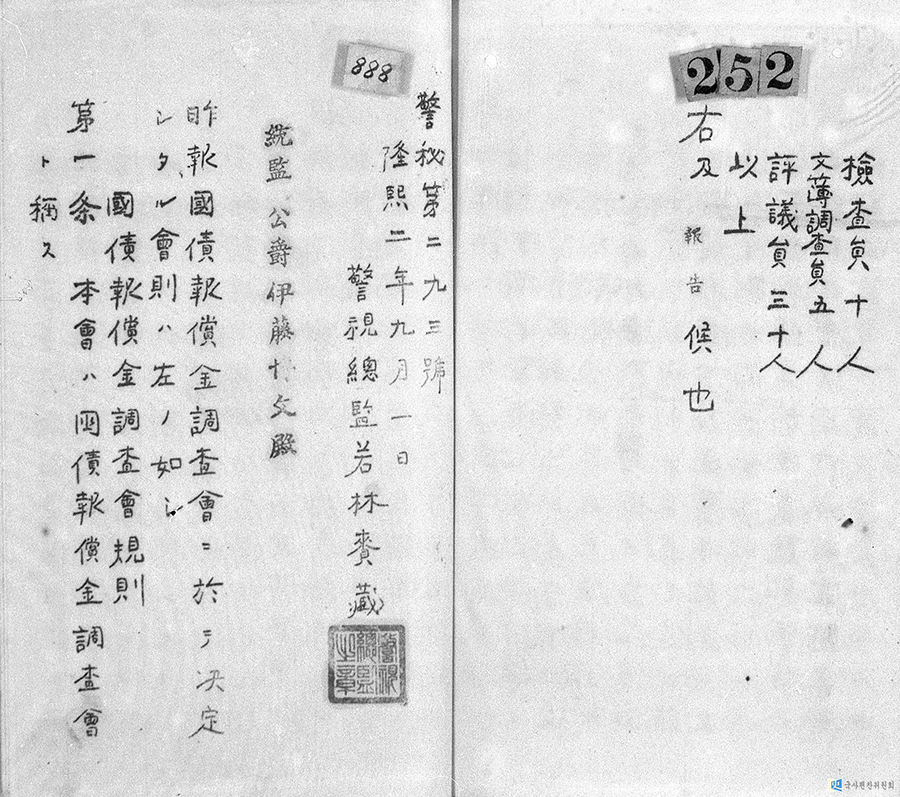 252
檢查員十人
文簿調查員五人
評議員三十人
以上
右及報告候也
888
警秘第二九三號
隆熙二年九月一日
警視總監若林賚藏
警視總監之章
統監公爵伊藤博文殿
昨報國債報償金調查會ニ於テ決定
シタル會則ハ左ノ如シ
國債報償金調查會規則
第一条本會ハ国債報償金調查會
ト稱ス
국사편찬위원회